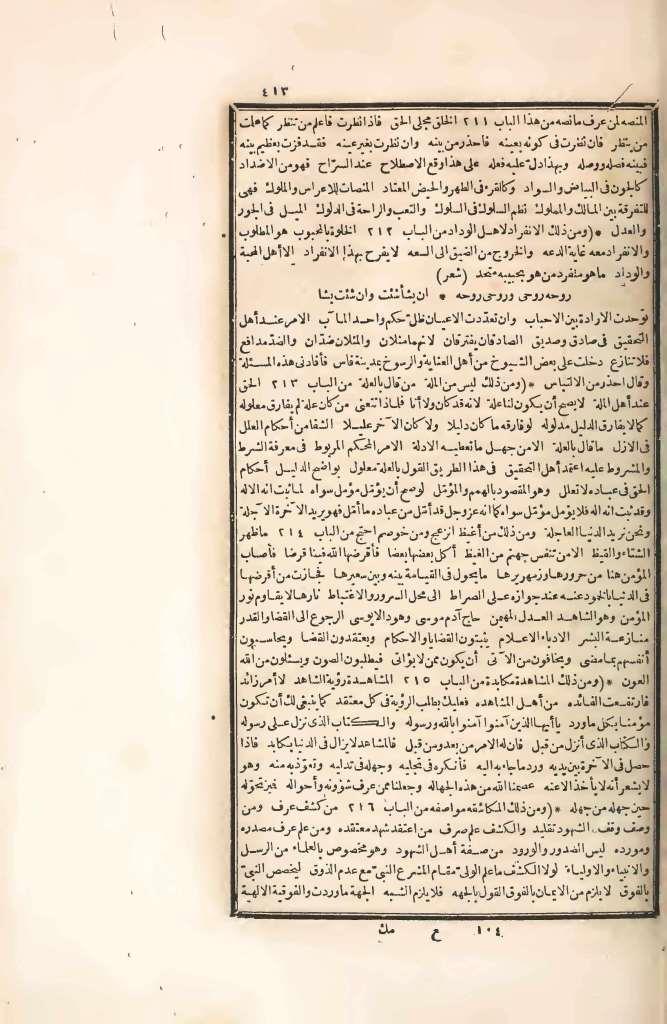 ٤١٣
المنصه لمن عرف مانصه من هذا الباب ٢١١ الخلق مجلى الحق فاذا نظرت فاعلم من تنظر كما علمت
من ينظر فان نظرت فى كونه بعينه فاحذر من بينه وان نظرت بغير عينه فقد فزت بعظيم بينه
فبينه فصله ووصله وبهذا دل عليه فعله على هذا وقع الاصطلاح عند السراح فهو من الاضداد
كالجون فى البياض والسواد وكالقرء فى الطهر والحيض المعتاد المنصات للاعراس والملوك فهى
للتفرقة بين المالك والمملوك نظم السلوك فى السلوك والتعب والراحة فى الدلوك الميل فى الجور
والعدل * (ومن ذلك الانفراد لاهل الوداد من الباب ٢١٢ الخلوة بالمحبوب هو المطلوب
والانفراد معه غاية الدعه والخروج من الضيق الى السعه لا يفرح بهذا الانفراد الا أهل المحبة
والوداد ما هو منفرد من هو بحبيبه متحد (شعر)
روحه روحى وروحى روحه * ان يشأ شئت وان شئت يشا
توحدت الارادة بين الاحباب وان تعددت الاعيان ظل حكم واحد المآب الامر عند أهل
التحقيق فى صادق وصديق الصادقان يفترقان لانهما مثلان والمثلان ضدان والضد مدافع
فلا تنازع دخلت على بعض الشيوخ من أهل العناية والرسوخ بمدينة فاس فأفادنى هذه المسئلة
وقال احذر من الالتباس * (ومن ذلك ليس من الملة من قال بالعلة من الباب ٢١٣ الحق
عند أهل الملة لا يصح أن يكون لنا علة لانه قد كان ولا أنا فلماذا تتعنى من كان علة لم يفارق معلوله
كما لا يفارق الدليل مدلوله لو فارقه ما كان دليلا ولا كان الآخر عليلا الشفا من أحكام العلل
فى الازل ما قال بالعلة الا من جهل ما تعطيه الادلة الامر المحكم المربوط فى معرفة الشرط
والمشروط عليه اعتمد أهل التحقيق فى هذا الطريق القول بالعلة معلول بواضح الدليل أحكام
الحق فى عباده لا تعلل وهو المقصود بالهمم والمؤمل لو صح أن يؤمل مؤمل سواه لما ثبت انه الاله
وقد ثبت انه اله فلا يؤمل مؤمل سواه كما انه عز وجل قد أمل من عباده ما أمل فهو يريد الآخرة الآجلة
ونحن نريد الدنيا العاجلة ومن ذلك من أغيظ انزعج ومن خوصم احتج من الباب ٢١٤ ما ظهر
الشتاء والقيظ الا من تنفس جهنم من الغيظ أكل بعضها بعضا فأقرضها الله فينا قرضا فأصاب
المؤمن هنا من حرورها وزمهريرها ما يحول فى القيامة بينه وبين سعيرها فجازت من أقرضها
فى الدنيا بالخمود عنه عند جوازه على الصراط الى محل السرور والاغتباط نارها لا يقاوم نور
المؤمن وهو الشاهد العدل المهيمن حاج آدم موسى وهو دالا يوسى الرجوع الى القضا والقدر
منازعة البشر الادباء الاعلام يثبتون القضايا والاحكام ويعتقدون القضا ويحاسبون
أنفسهم بما مضى ويخافون من الآتى أن يكون ممن لا يؤاتى فيطلبون الصون ويسئلون من الله
العون * (ومن ذلك المشاهدة مكابدة من الباب ٢١٥ المشاهدة رؤية الشاهد لا أمر زائد
فارتفعت الفائده من أهل المشاهده فعليك بطلب الرؤية فى كل معتقد كما ينبغى لك أن تكون
مؤمنا بكل ما ورد يا أيها الذين آمنوا آمنوا بالله ورسوله والكتاب الذى نزل على رسوله
والكتاب الذى أنزل من قبل فان له الامر من بعد ومن قبل فالمشاهد لا يزال فى الدنيا يكابد فاذا
حصل فى الآخرة بين يديه ورد ما جاء به اليه فأنكره فى تجليه وجهله فى تدليه وتعوذ به منه وهو
لا يشعر أنه لا يأخذ الا عنه عصمنا الله من هذه الجهاله وجعلنا ممن عرف شؤونه وأحواله فيز تحوله
حين جهله من جهله * (ومن ذلك المكاشفه مواصفه من الباب ٢١٦ من كشف عرف ومن
وصف وقف الشهود تقليد والكشف علم صرف من اعتقد شهد معتقده ومن علم عرف مصدره
ومورده ليس الصدور والورود من صفة أهل الشهود وهو مخصوص بالعلماء من الرسل
والانبياء والاولياء لولا الكشف ما علم الولى مقام المشرع النبى مع عدم الذوق ليخصص النبى
بالفوق لا يلزم من الايمان بالفوق القول بالجهه فلا يلزم الشبه الجهة ما وردت والفوقية الالهية
١٠٤ ع مك